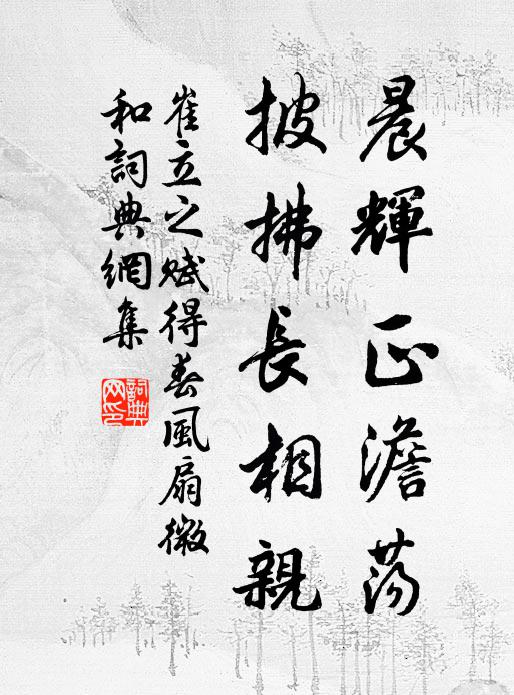 晨輝正澹蕩
披拂長相親
崔立之賦得春風扇微
和詞典網集
詞典網印